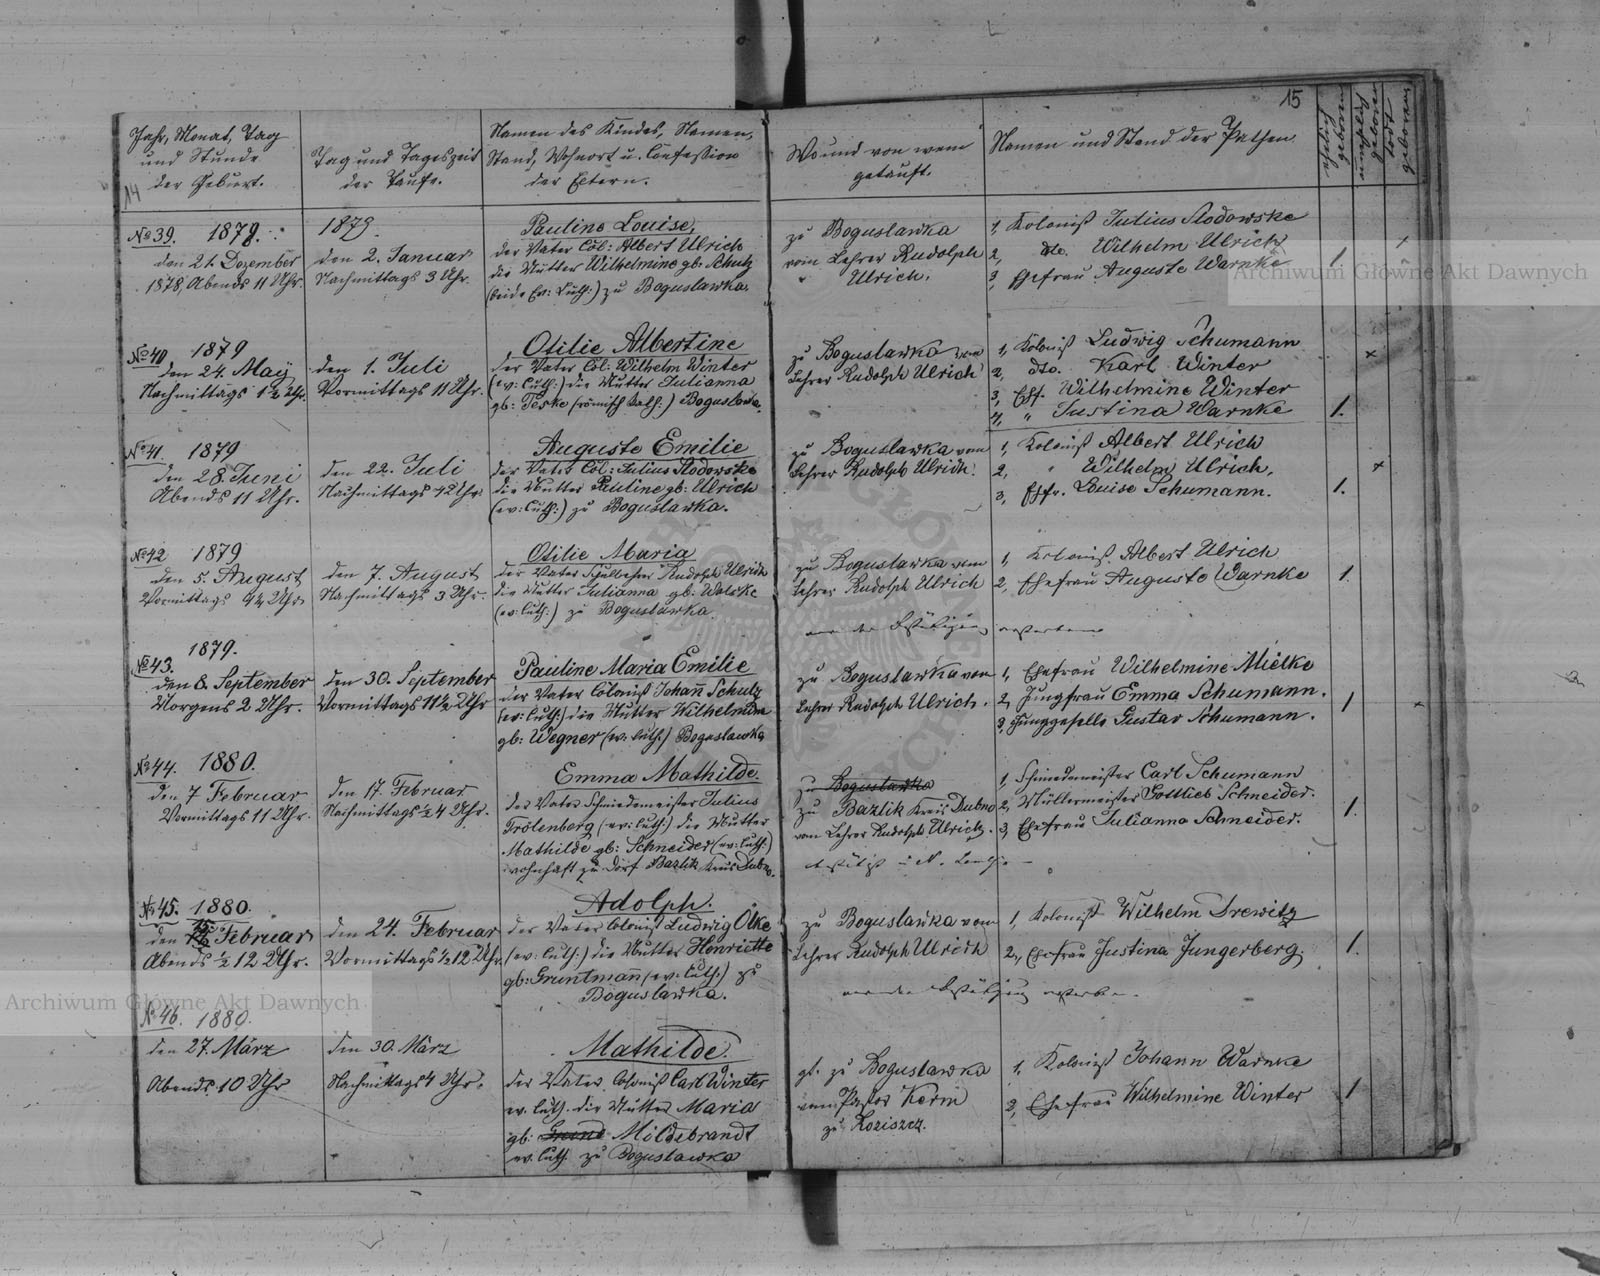 15
14
Jahr, Monat, Tag
und Stunde
der Geburt.
Tag und Tageszeit
der Taufe.
Namen des Kindes, Namen,
Stand, Wohnort u. Confession
der Eltern.
Wo und von wem
getauft.
Namen und Stand der Pathen
ehelich
geboren
unehelich
geboren
todt
geboren
No 39. 1878.
den 21. Dezember
1878, Abends 11 Uhr.
1879.
den 2. Januar
Nachmittags 3 Uhr.
Pauline Louise,
der Vater Col: Albert Ulrich
die Mutter Wilhelmine gb: Schulz
(beide Ev: Luth:) zu Boguslawka.
zu Boguslawka
vom Lehrer Rudolph
Ulrich.
1, Kolonist Julius Stodowske
2, dto. Wilhelm Ulrich
3, Ehefrau Auguste Warnke
1.
No 40 1879
den 24. May
Nachmittags 1½ Uhr.
den 1. Juli
Vormittags 11 Uhr.
Otilie Albertine
der Vater Col: Wilhelm Winter
(ev: Luth:) die Mutter Julianna
gb: Teske (römisch Kath:) Boguslawka.
zu Boguslawka vom
Lehrer Rudolph Ulrich
1, Kolonist Ludwig Schumann
2, dto. Karl Winter
3, Ehf. Wilhelmine Winter
4, " Justina Warnke
1.
No 41. 1879
den 28. Juni
Abends 11 Uhr.
den 22. Juli
Nachmittags 4 Uhr.
Auguste Emilie
der Vater Col: Julius Stodowske
die Mutter Pauline gb: Ulrich
(ev: Luth:) zu Boguslawka.
zu Boguslawka vom
Lehrer Rudolph Ulrich
1, Kolonist Albert Ulrich
2, " Wilhelm Ulrich,
3, Ehfr. Louise Schumann.
1.
No 42 1879
den 5. August
Vormittags 9½ Uhr
den 7. August
Nachmittags 3 Uhr.
Otilie Maria
der Vater Schullehrer Rudolph Ulrich
die Mutter Julianna gb: Walske
(ev: Luth:) zu Boguslawka.
zu Boguslawka vom
Lehrer Rudolph Ulrich
1, Kolonist Albert Ulrich
2, Ehefrau Auguste Warnke
1.
vor der Bestätigung verstorben
1879.
No 43.
den 8. September
Morgens 2 Uhr.
den 30. September
Vormittags 11½ Uhr
Pauline Maria Emilie
der Vater Colonist Johann Schulz
(ev: Luth:) die Mutter Wilhelmine
gb: Wegner (ev: Luth.) Boguslawka
zu Boguslawka vom
Lehrer Rudolph Ulrich.
1, Ehefrau Wilhelmine Mielke
2, Jungfrau Emma Schumann.
3, Junggeselle Gustav Schumann.
1
No 44. 1880.
den 7 Februar
Vormittags 11 Uhr.
den 17. Februar
Nachmittags ½4 Uhr.
Emma Mathilde.
der Vater Schmiedemeister Julius
Frölenberg (ev: Luth:) die Mutter
Mathilde gb: Schneider (ev: Luth:)
wohnhaft zu Dorf Bazlik Kreis Dubno.
zu Boguslawka
zu Bazlik Kreis Dubno
vom Lehrer Rudolph Ulrich.
1, Schmiedemeister Carl Schumann
2, Müllermeister Gottlieb Schneider.
3, Ehefrau Julianna Schneider.
1.
No 45. 1880.
15
den Februar
Abends ½ 12 Uhr.
den 24. Februar
Vormittags ½ 12 Uhr.
Adolph.
der Vater Colonist Ludwig Ölke
(ev: Luth:) die Mutter Henriette
gb: Gruntmann (ev: Luth.) zu
Boguslawka.
zu Boguslawka vom
Lehrer Rudolph Ulrich
1, Kolonist Wilhelm Drewitz
2, Ehefrau Justina Jungerberg.
1.
vor der Bestätigung verstorben.
No 46. 1880.
den 27. März
Abends 10 Uhr
den 30. März
Nachmittags 4 Uhr.
Mathilde.
der Vater Colonist Carl Winter
ev. Luth. die Mutter Maria
gb: Mildebrandt
ev. Luth. zu Boguslawka
gt. zu Boguslawka
vom Pastor Kerm
zu Roziszcz.
1, Kolonist Johann Warnke
2, Ehefrau Wilhelmine Winter
1
Archiwum Główne Akt Dawnych
Archiwum Główne Akt Dawnych